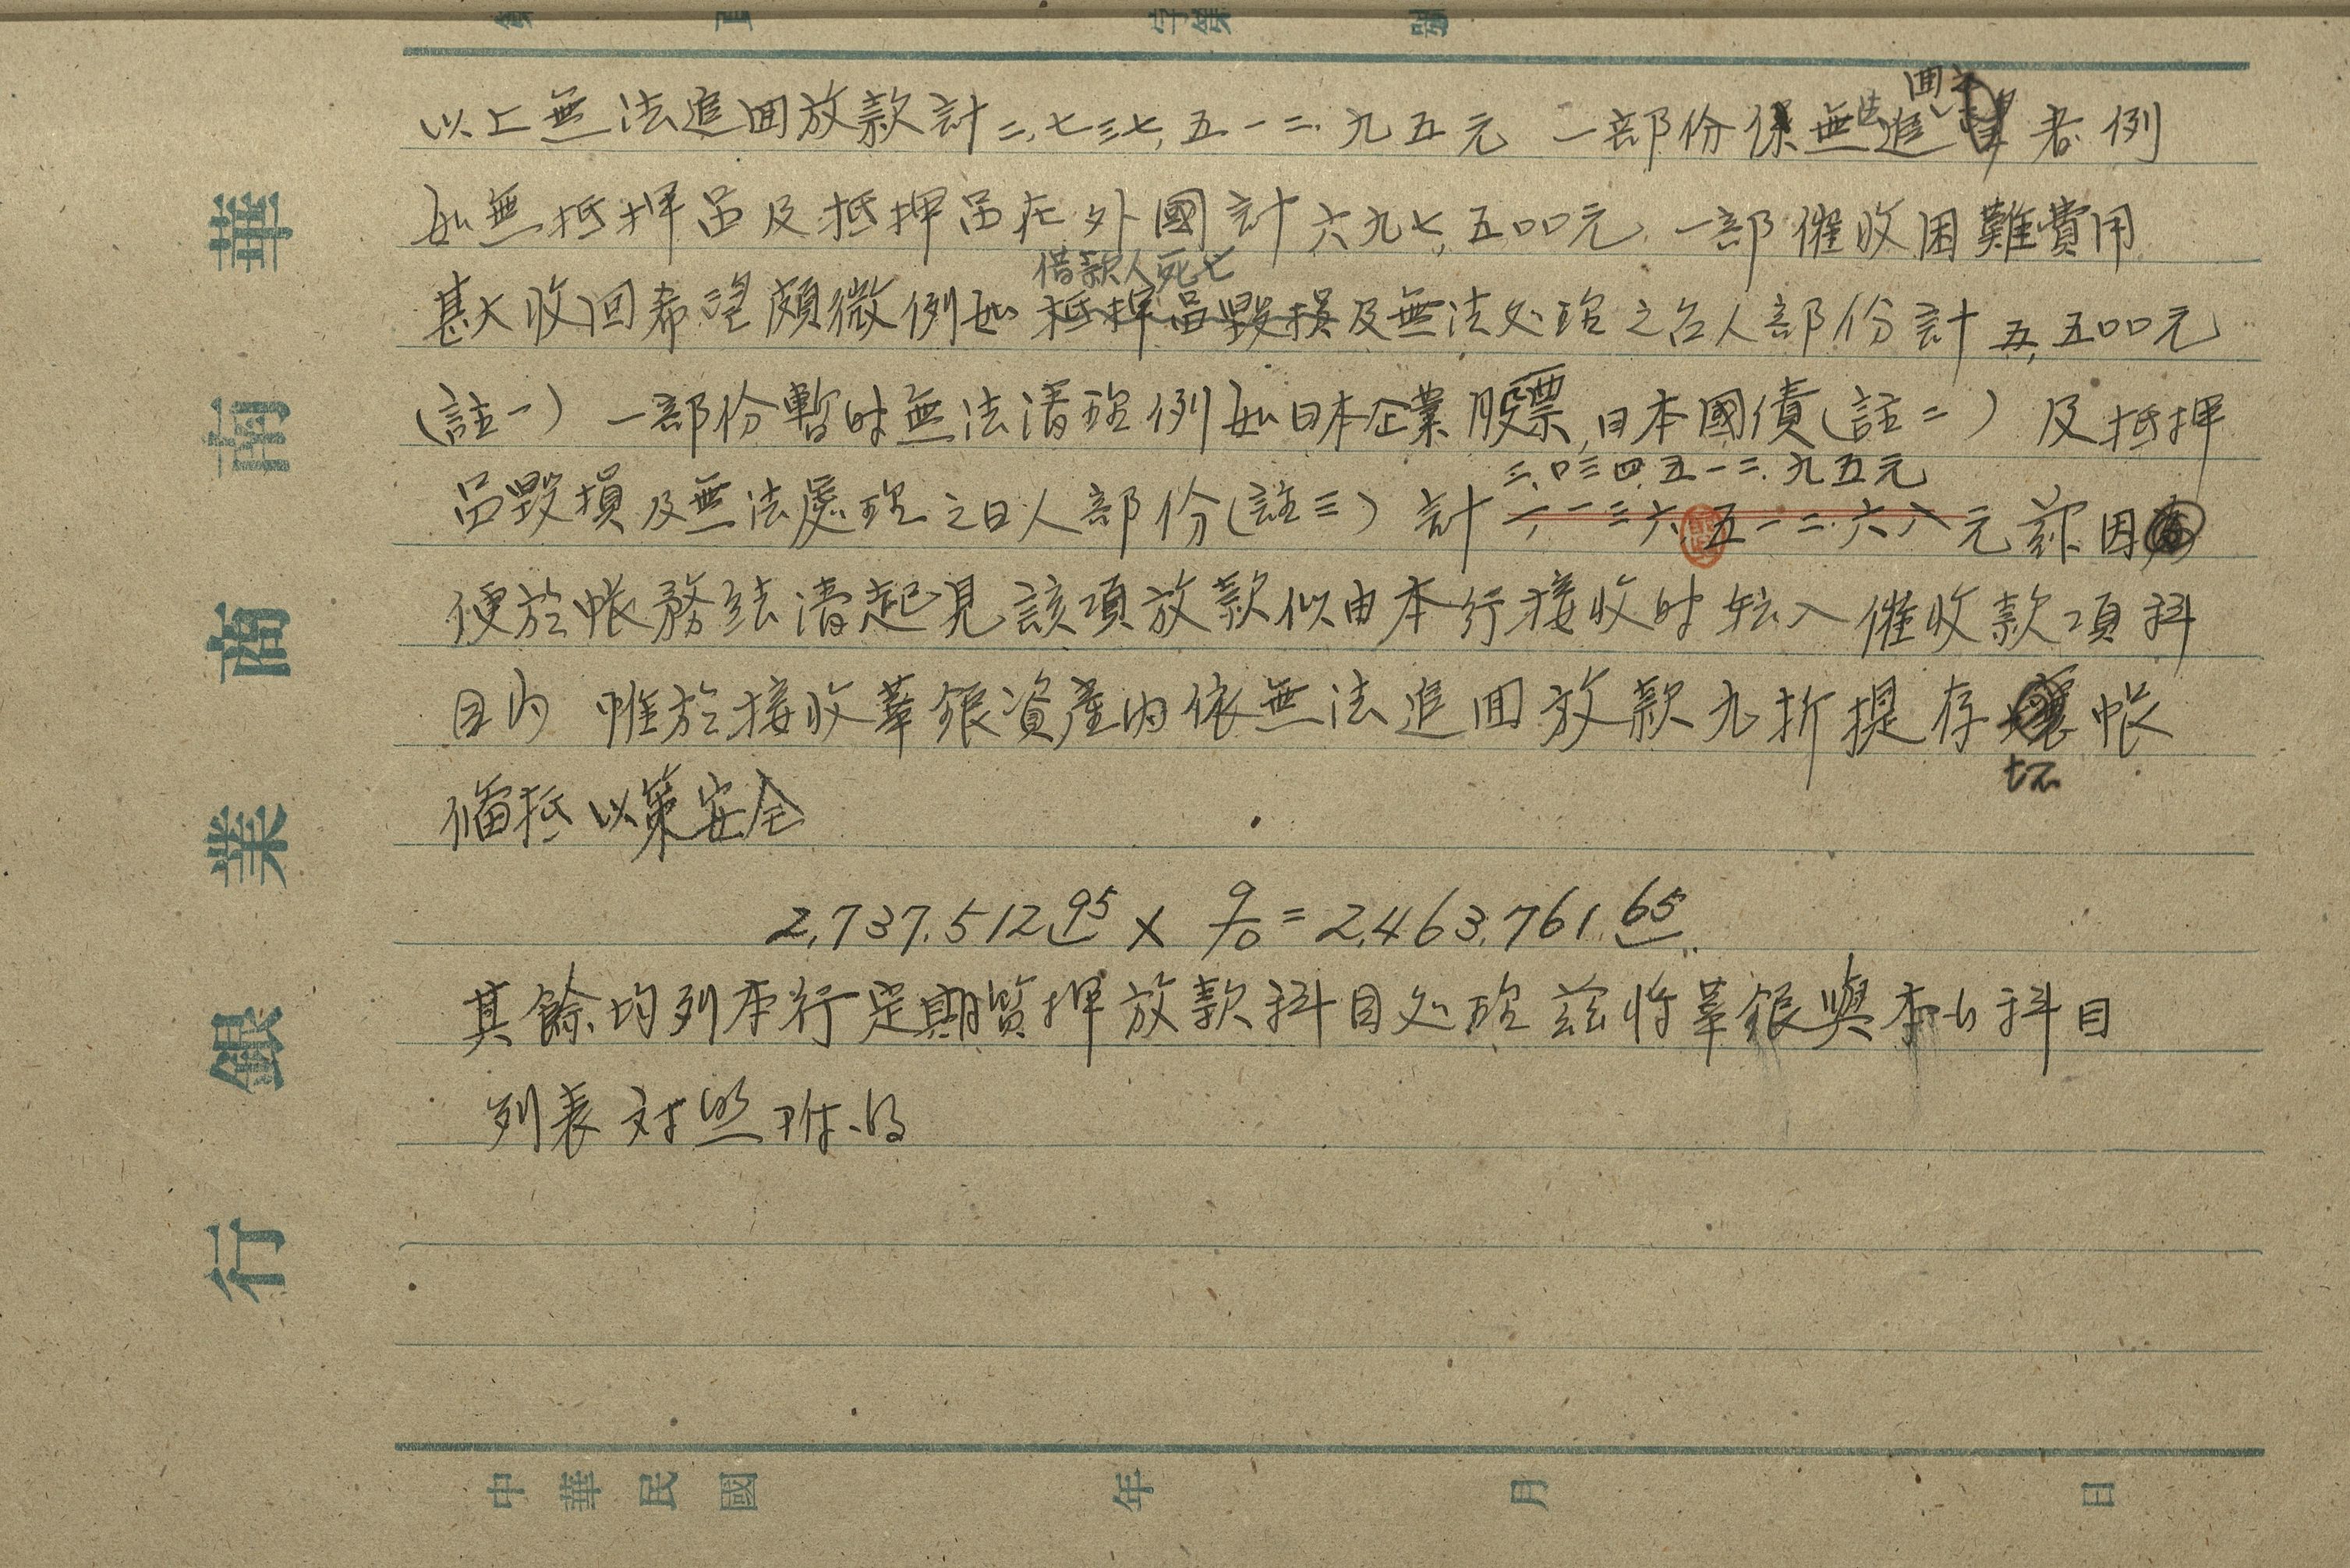 以上無法追囬放款計二,七三七,五一二.九五元 一部份係無法追囬者例
如無抵押品及抵押品在外國計六九七,五〇〇元,一部催收困難費用
甚大收回希望頗微例如借款人死亡抵押品毀損及無法处理之台人部份計五,五〇〇元
(註一) 一部份暫时無法清理例如日本企業股票,日本國債(註二) 及抵押
品毀損及無法處理之日人部份(註三) 計
二,〇三四,五一二.九五元
一,一三六,五一二.六八元茲因
便於帳務結清起見該項放款似由本行接收时転入催收款項科
目内 惟於接收華銀資產内依無法追囬放款九折提存坏帳
俻抵以策安全
2,737,512.95 × 9/10 = 2,463,761.65
其餘均列本行定期質押放款科目处理茲將華銀與本行科目
列表対照附后
華南商業銀行
中華民國 年 月 日